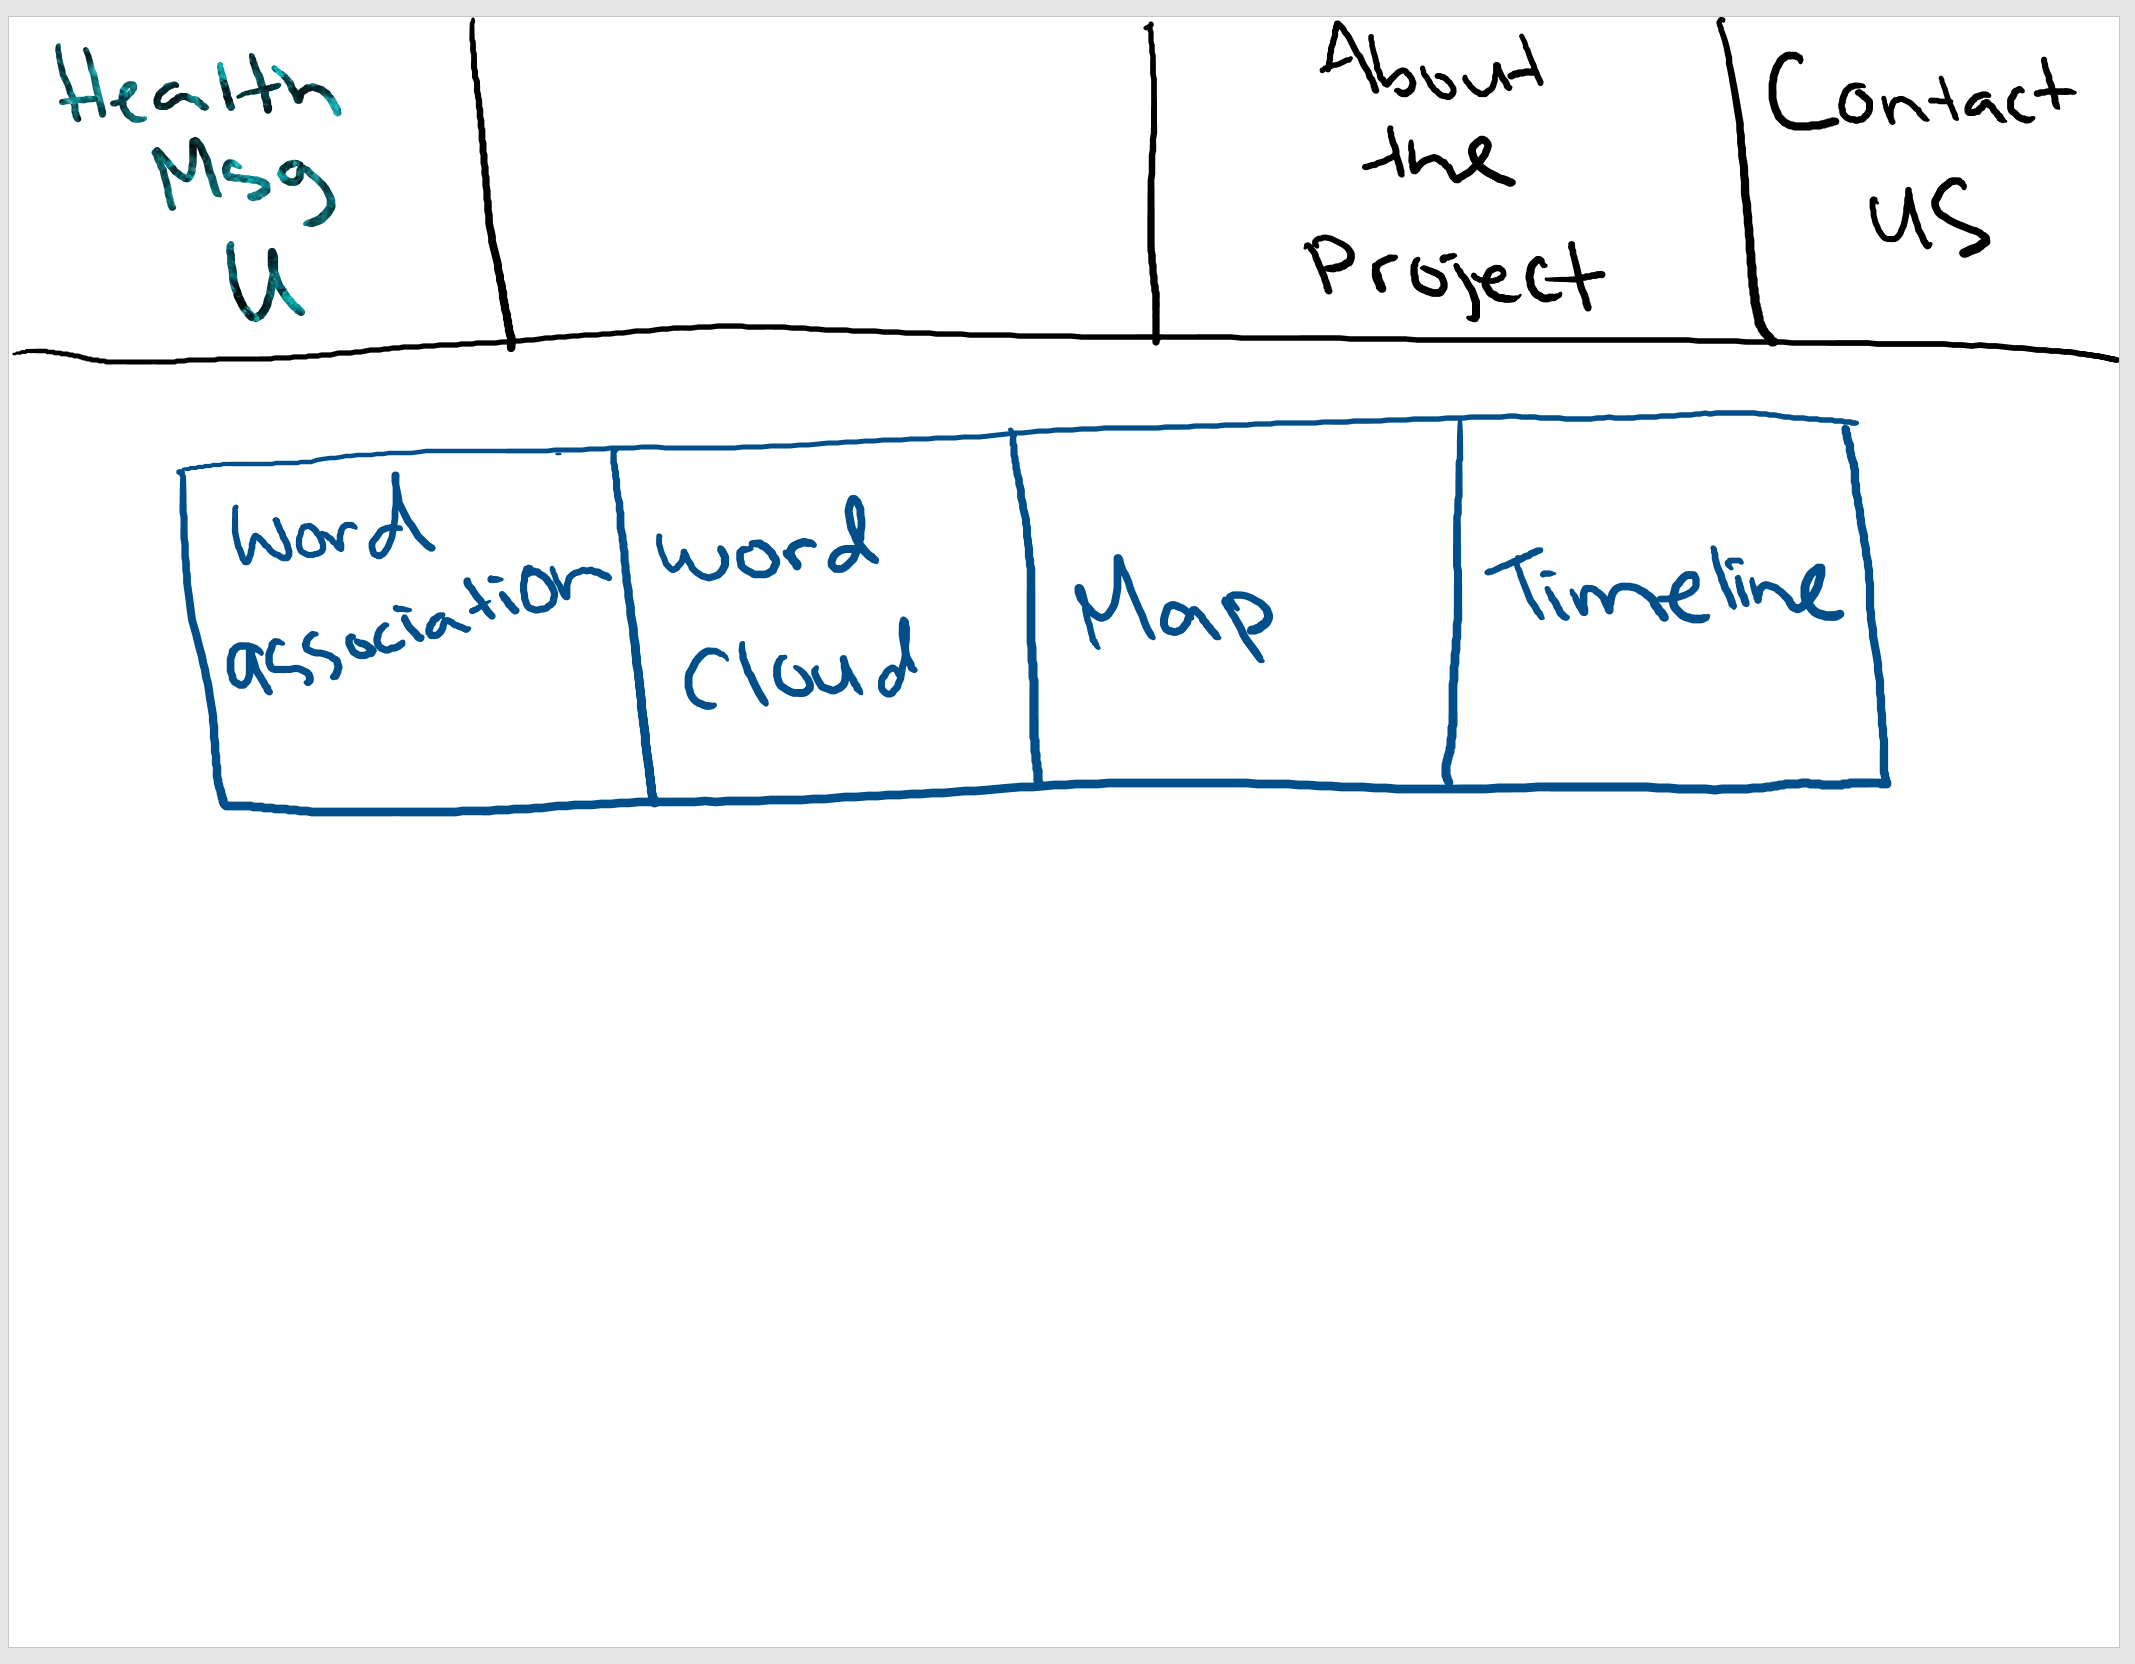 Health
Msg
U
About
the
Project
Contact
US
Word
association
word
Cloud
Map
Timeline